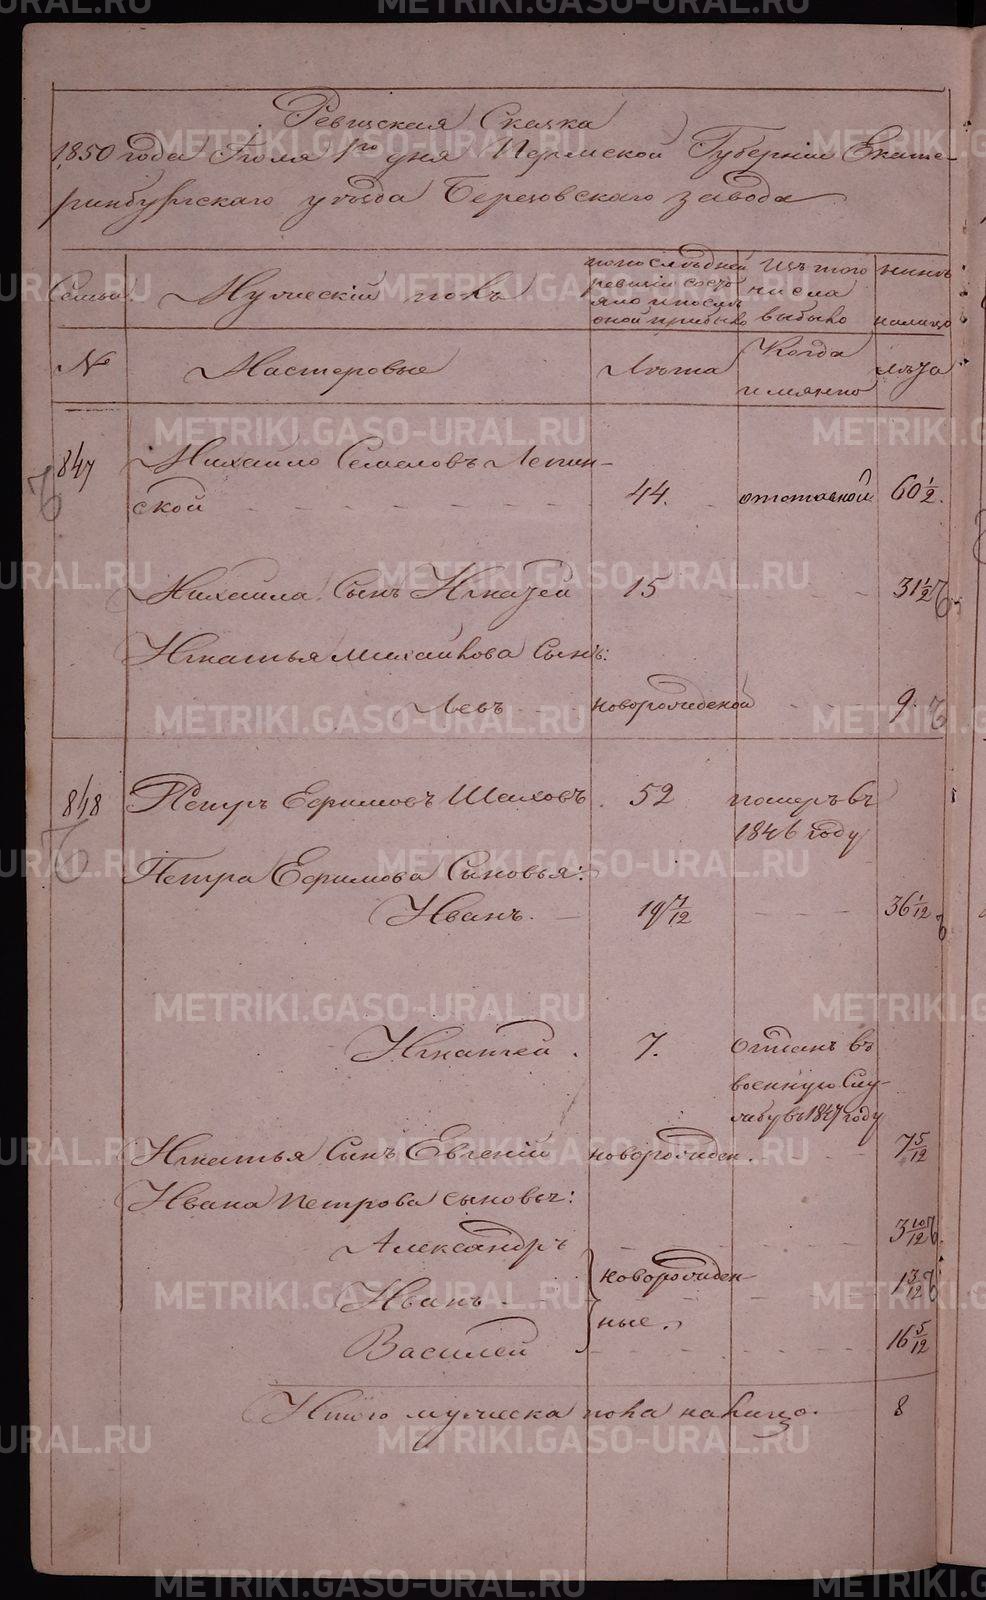 Ревизская Сказка
1850 года Июля 1го дня Пермской Губерніи Екате-
ринбургскаго уѣзда Березовскаго завода
Семьи
Мужескій полъ
по последней ревизіи состояло и после оной прибыло
Изъ того числа выбыло
нынѣ налицо
№
Мастеровые
Лѣта
Когда имянно
лѣта
847
Михайло Семеновъ Лепин-
ской 44. отставной 60 1/2.
Михайла Сынъ Игнатей 15 31 1/2
Игнатья Михайлова Сынъ:
Левъ новорожденой 9.
848
Петръ Ефимовъ Шаховъ 52 померъ въ
1846 году
Петра Ефимова Сыновья:
Иванъ. 19 7/12 36 1/12
Игнатей. 7. отданъ въ
военную Слу-
жбу въ 1847 году
Игнатья Сынъ Евгеній новорожден. 7 5/12
Ивана Петрова сыновья:
Александръ 3 10/12
Иванъ новорожден- 1 3/12
ные.
Василей 16 5/12
Итого мужеска пола налицо. 8
METRIKI.GASO-URAL.RU